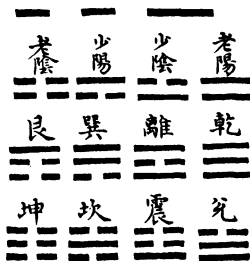 老陰 少陽 少陰 老陽
艮 巽 離 乾
坤 坎 震 兌